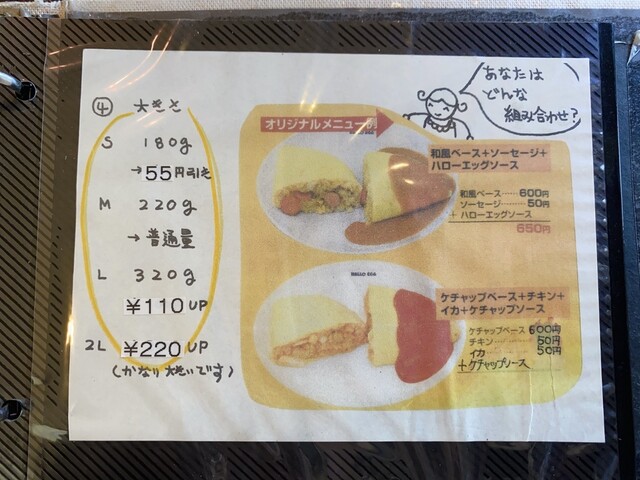 ④ 大きさ
S 180g
→55円引き
M 220g
→普通量
L 320g
¥110UP
2L ¥220UP
(かなり大きいです)
あなたは
どんな
組み合わせ?
オリジナルメニュー例
和風ベース+ソーセージ+
ハローエッグソース
和風ベース……600円
ソーセージ………50円
+ハローエッグソース
650円
HELLO EGG
ケチャップベース+チキン+
イカ+ケチャップソース
ケチャップベース 600円
チキン 50円
イカ 50円
+ケチャップソース